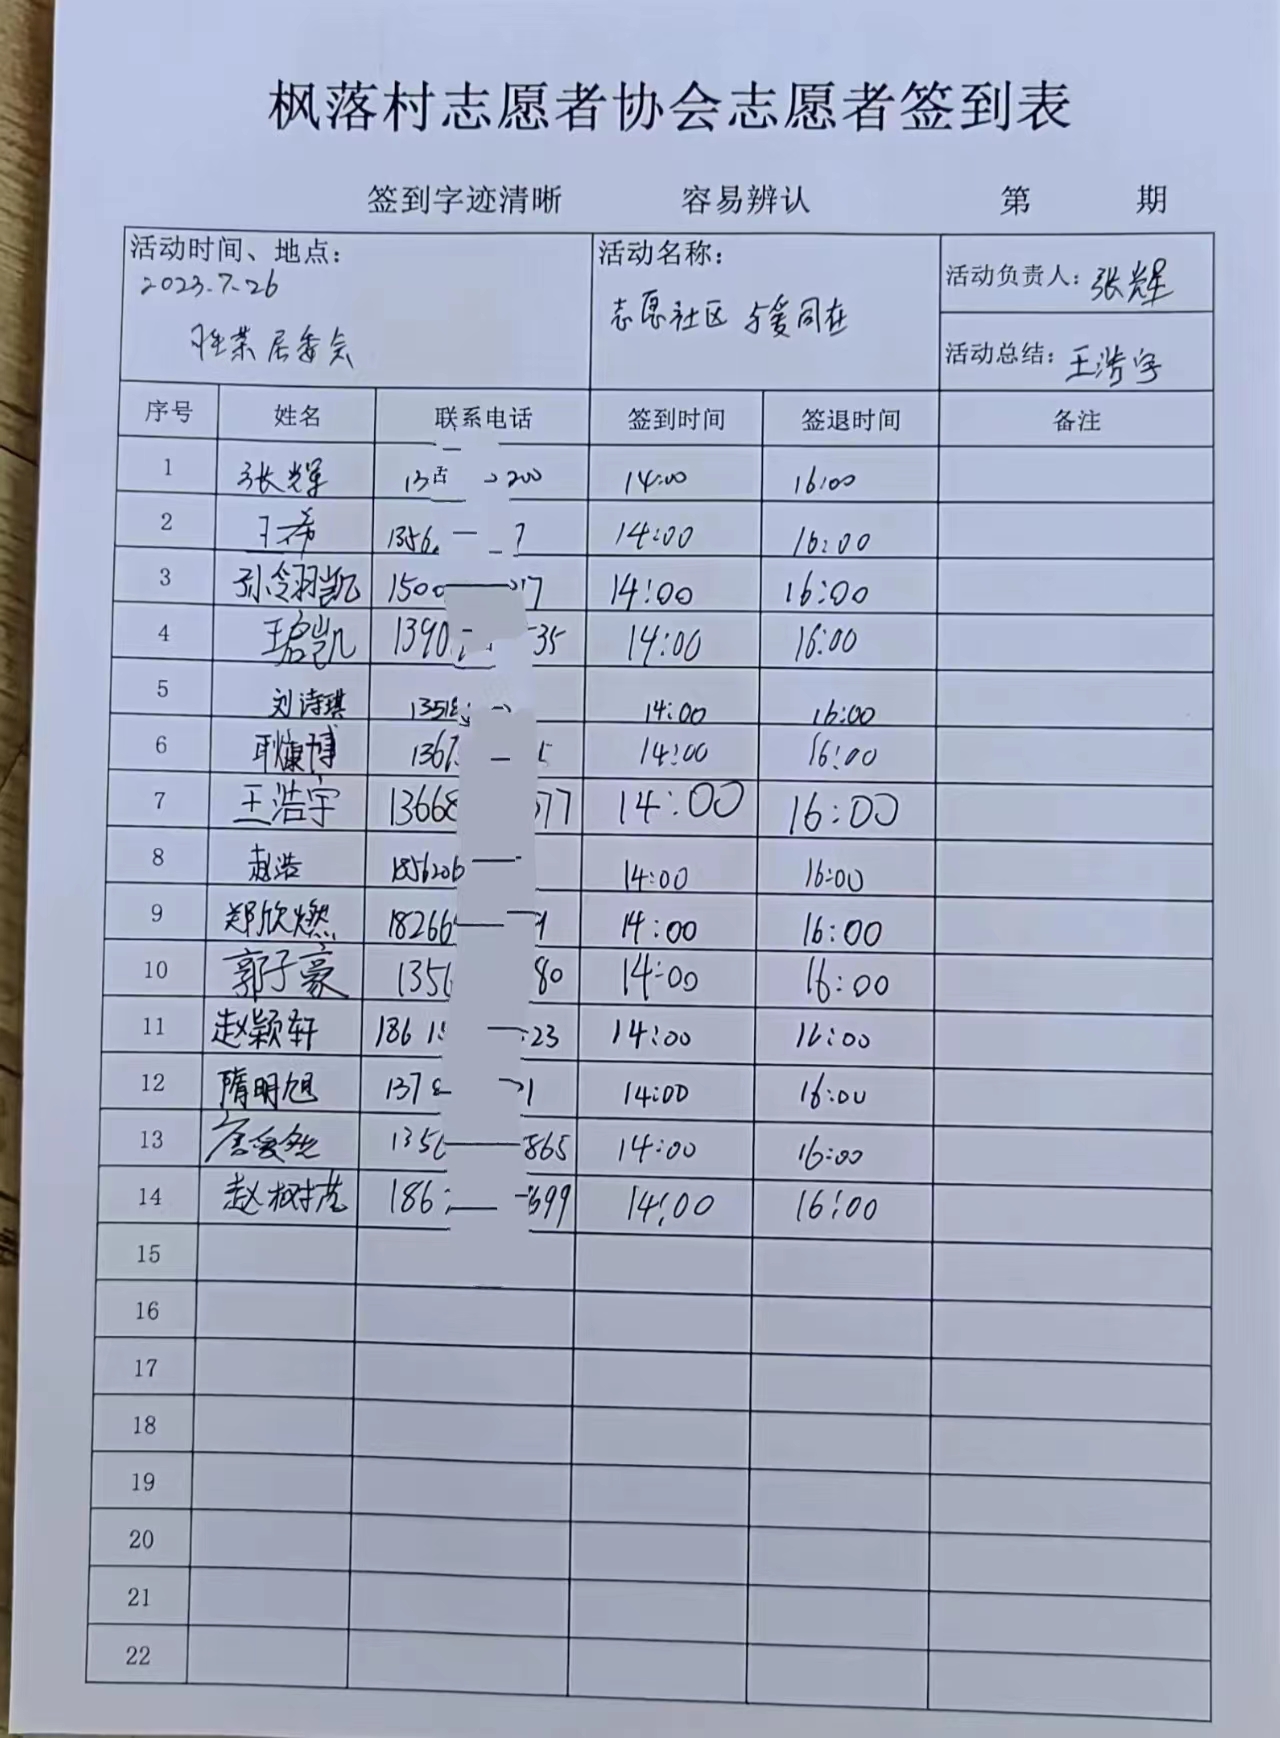 枫落村志愿者协会志愿者签到表
签到字迹清晰 容易辨认 第 期
活动时间、地点：
2023.7.26
居委会
活动名称：
志愿社区 与爱同在
活动负责人：张辉
活动总结：王浩宇
序号 姓名 联系电话 签到时间 签退时间 备注
1 张辉 13 200 14:00 16:00
2 王希 1356 7 14:00 16:00
3 孙翎凯 1500 17 14:00 16:00
4 王君凯 1390 35 14:00 16:00
5 刘诗琪 1351 14:00 16:00
6 耿慷博 1367 14:00 16:00
7 王浩宇 13668 77 14:00 16:00
8 赵浩 185620 14:00 16:00
9 郑欣燃 18266 14:00 16:00
10 郭子豪 1356 80 14:00 16:00
11 赵颖轩 186 1 23 14:00 16:00
12 隋明旭 137 1 14:00 16:00
13 135 865 14:00 16:00
14 赵树 186 699 14:00 16:00
15
16
17
18
19
20
21
22